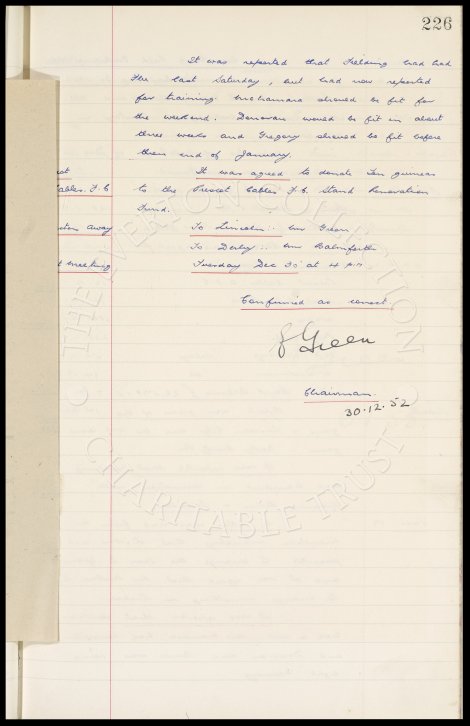 226
It was reported that Fielding had had
flu last Saturday, but had now reported
for training. McNamara should be fit for
the weekend. Donovan would be fit in about
three weeks and Gregory should be fit before
then end of January.
It was agreed to donate Ten guineas
ables F.C. to the Prescot Cables F.C. Stand Renovation
Fund.
away To Lincoln :- Mr Green
To Derby :- Mr Balmforth
t meeting Tuesday Dec 30 at 4 P.M
Confirmed as correct
Green
Chairman.
30.12.52
THE EVERTON COLLECTION
CHARITABLE TRUST